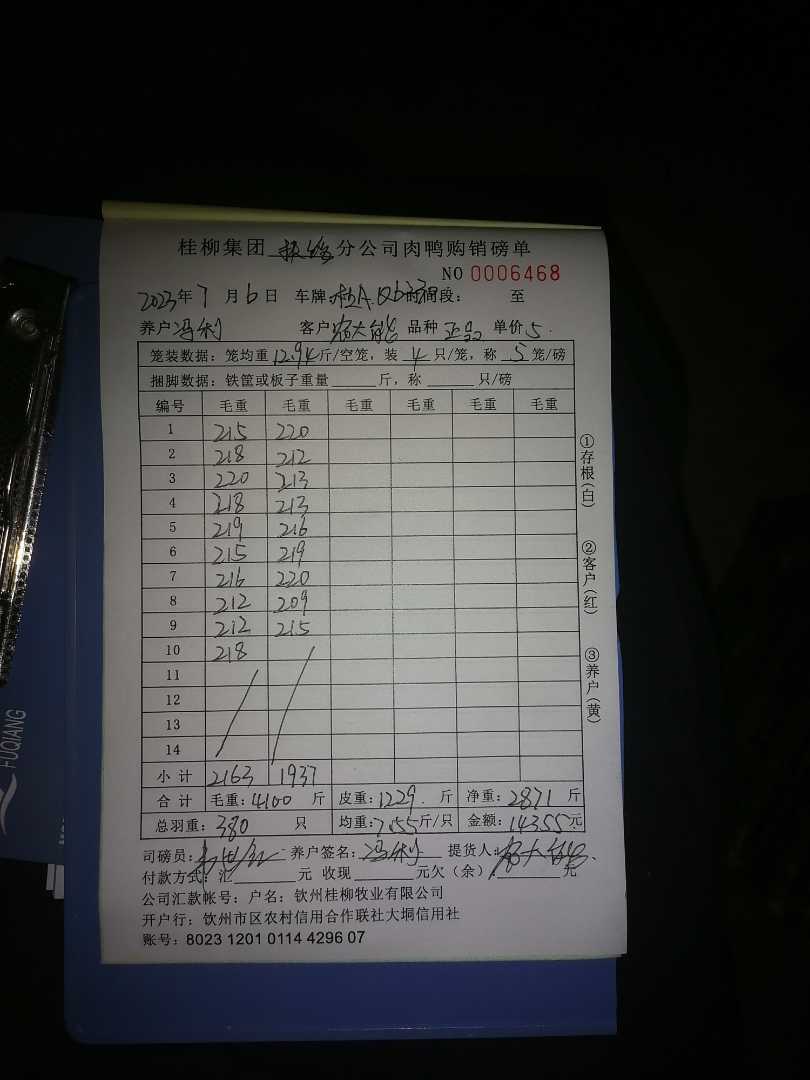 桂柳集团 分公司肉鸭购销磅单
NO 0006468
2023年7月6日 车牌:桂A 时间段: 至
养户冯利 客户 大能 品种 正品 单价5.
笼装数据:笼均重12.94斤/空笼,装 4 只/笼,称 5 笼/磅
捆脚数据:铁筐或板子重量 斤,称 只/磅
编号 毛重 毛重 毛重 毛重 毛重 毛重
1 215 220
2 218 212
3 220 213
4 218 213
5 219 216
6 215 219
7 216 220
8 212 209
9 212 215
10 218
11
12
13
14
小计 2163 1937
合计 毛重:4100 斤 皮重:1229. 斤 净重:2871 斤
总羽重:380 只 均重:7.55斤/只 金额:14355元
司磅员: 养户签名:冯利 提货人: 大能
付款方式:汇 元 收现 元欠(余) 元
公司汇款帐号:户名:钦州桂柳牧业有限公司
开户行:钦州市区农村信用合作联社大垌信用社
账号:8023 1201 0114 4296 07
①存根(白)
②客户(红)
③养户(黄)
FUQIANG